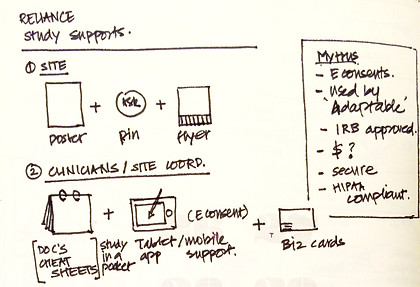 RELIANCE
study supports.
① SITE
poster + pin + flyer
ASK
② CLINICIANS / SITE COORD.
+ (E consent) +
[DOC'S CHEAT SHEETS]
study in a pocket
Tablet/mobile
app support.
Biz cards
Mytrus
- E consents.
- used by
'Adaptable'
- IRB approved.
- $ ?
- secure
- HIPAA
compliant.